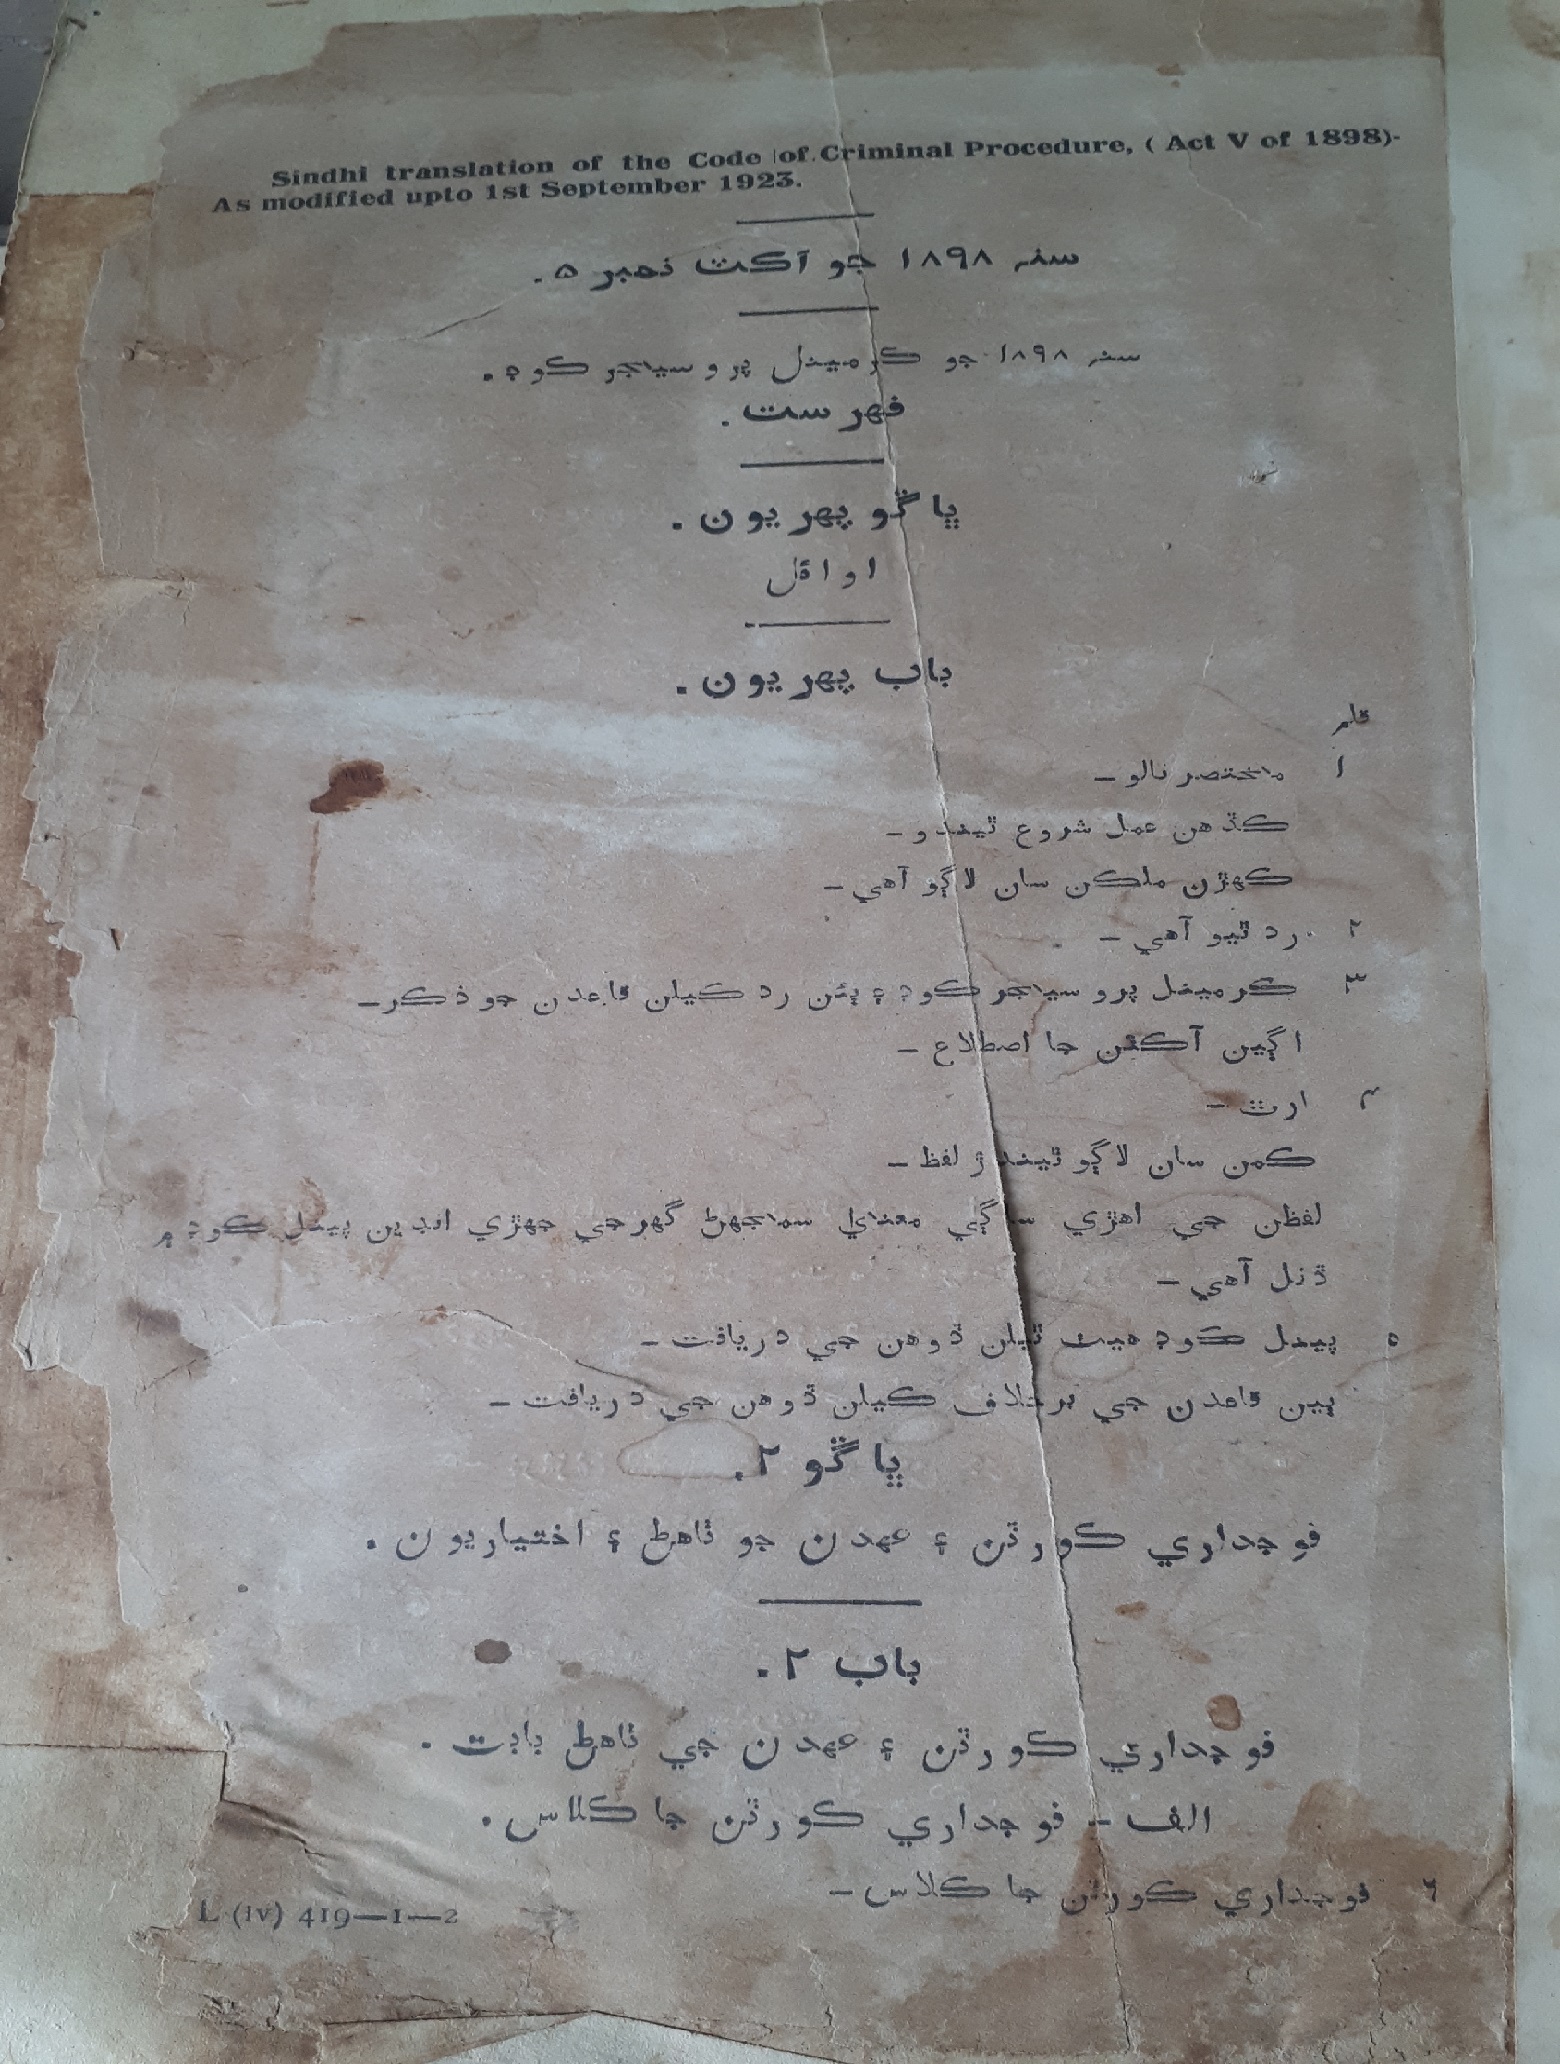 Sindhi translation of the Code of Criminal Procedure, ( Act V of 1898)-
As modified upto 1st September 1923.
سنہ ١٨٩٨ جو آڪٽ نمبر ٥.
سنہ ١٨٩٨ جو ڪرمينل پروسيجر ڪوڊ.
فهرست.
ڀاڱو پهريون.
اوائل
باب پهريون.
قلم
١ مختصر نالو–
ڪڏهن عمل شروع ٿيندو–
ڪهڙن ملڪن سان لاڳو آهي–
٢ رد ٿيو آهي–
٣ ڪرمينل پروسيجر ڪوڊ ۽ ٻئن رد ڪيلن قاعدن جو ذڪر–
اڳين آڪٽن جا اصطلاح–
٤ ارٿ–
ڪمن سان لاڳو ٿيندڙ لفظ–
لفظن جي اهڙي ساڳي معنيٰ سمجهڻ گهرجي جهڙي انڊين پينل ڪوڊ ۾
ڏنل آهي–
٥ پينل ڪوڊ هيٺ ٿيلن ڏوهن جي دريافت–
ٻين قاعدن جي برخلاف ڪيلن ڏوهن جي دريافت–
ڀاڱو ٢.
فوجداري ڪورٽن ۽ عهدن جو ٺاهڻ ۽ اختياريون.
باب ٢.
فوجداري ڪورٽن ۽ عهدن جي ٺاهڻ بابت.
الف – فوجداري ڪورٽن جا ڪلاس.
٦ فوجداري ڪورٽن جا ڪلاس–
L (iv) 419—1—2